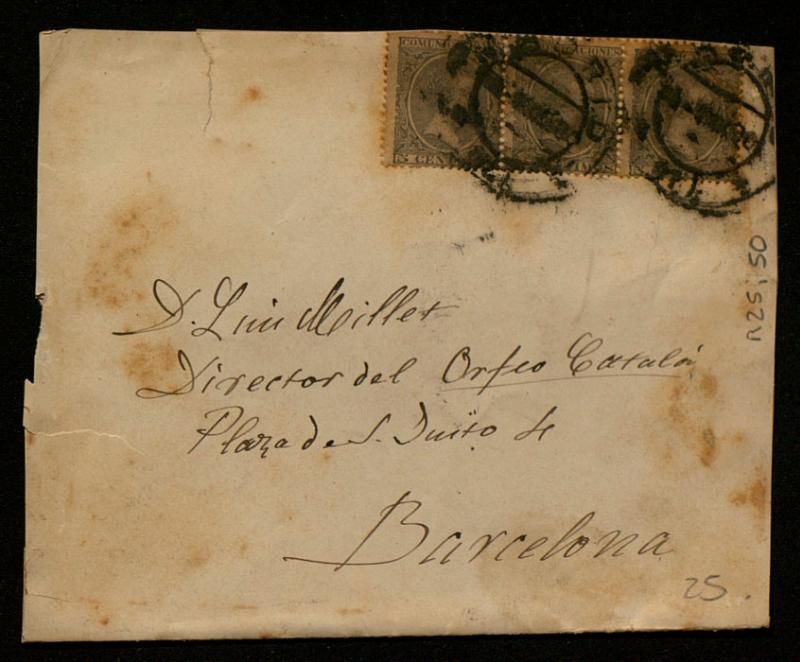 COMUNICACIONES
5 CENT
D. Luis Millet
Director del Orfeo Catalá
Plaza de S. Justo 4
Barcelona
R25, 50
25.